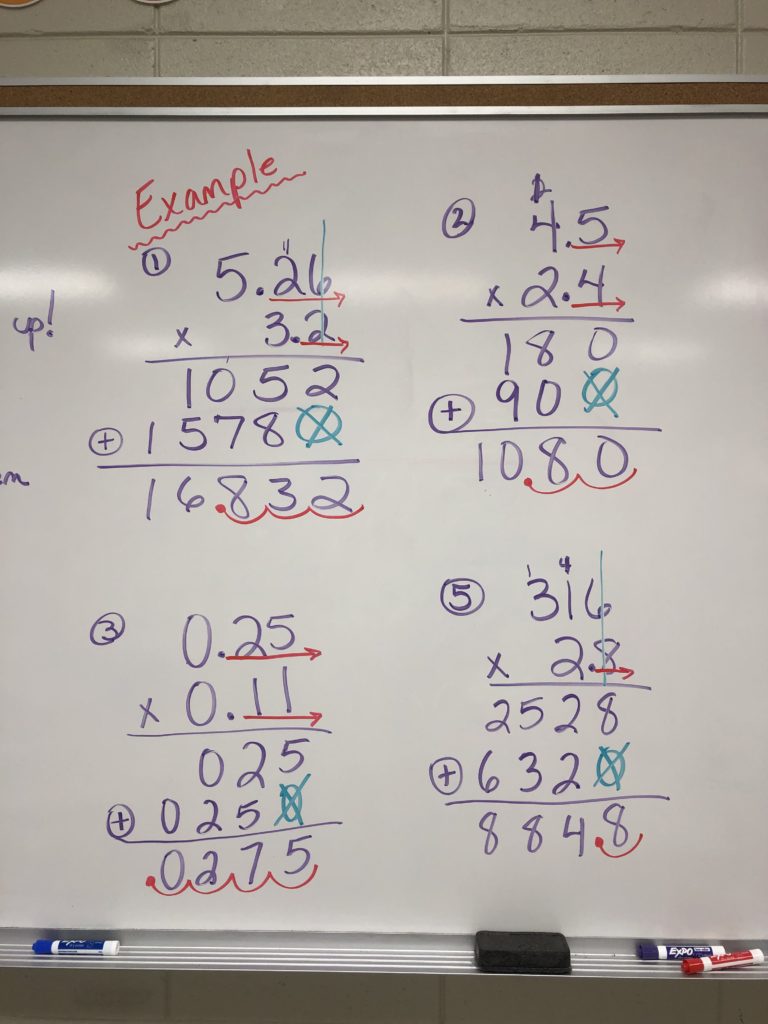 Example
① 5.26
x 3.2
1052
+ 15780
16.832
up!
② 4.5
x 2.4
180
+ 900
10.80
③ 0.25
x 0.11
025
+ 0250
.0275
⑤ 316
x 2.8
2528
+ 6320
884.8
EXPO